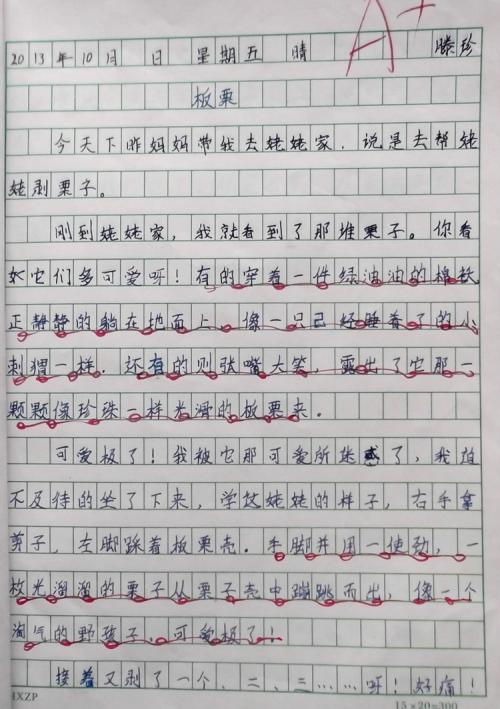 A+
2013年10月 日 星期五 晴 滕珍
板栗
今天下昨妈妈带我去姥姥家,说是去帮姥
姥剥栗子。
刚到姥姥家,我就看到了那堆栗子。你看
它们多可爱呀!有的穿着一件绿油油的棉袄
正静静的躺在地面上,像一只已经睡着了的小
刺猬一样.还有的则张嘴大笑,露出了它那一
颗颗像珍珠一样光滑的板栗来.
可爱极了!我被它那可爱所迷惑了,我迫
不及待的坐了下来,学这姥姥的样子,右手拿
剪子,左脚踩着板栗壳.手脚并用一使劲,一
枚光溜溜的栗子从栗子壳中蹦跳而出,像一个
淘气的野孩子.可爱极了!
接着又剥了一个,二,三……呀!好痛!
IXZP 15×20=300